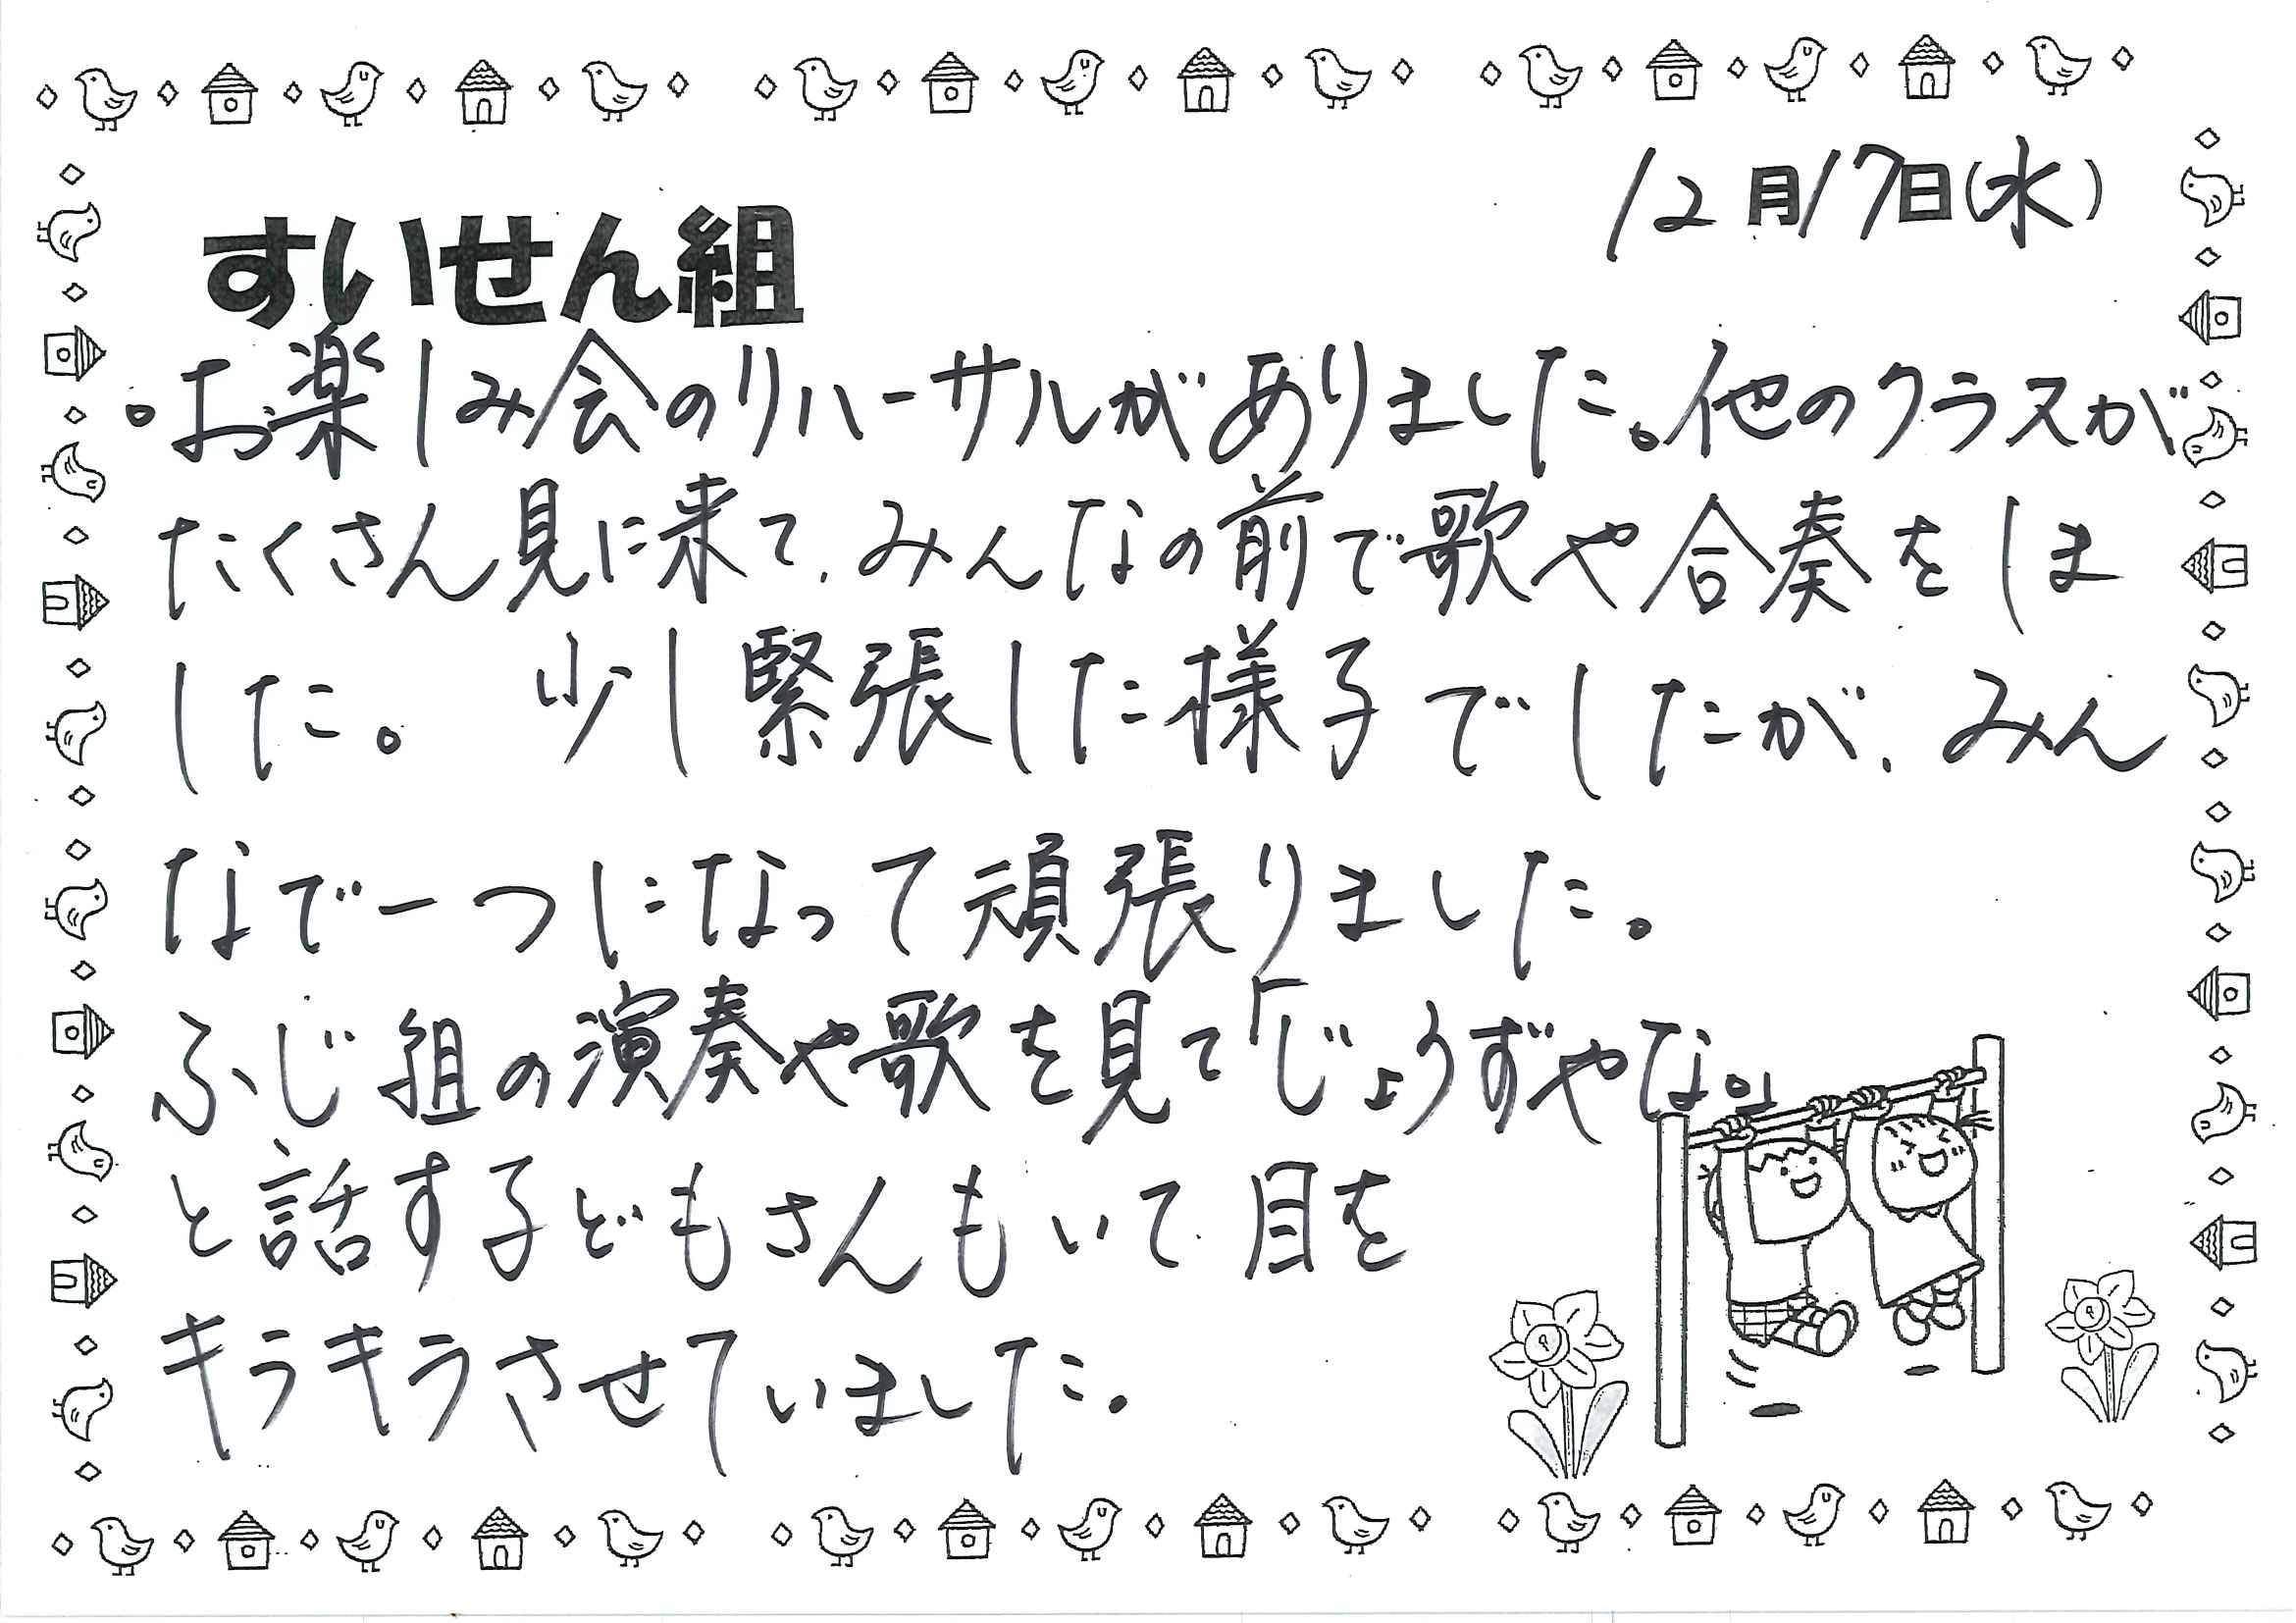 12月17日(水)
すいせん組
。お楽しみ会のリハーサルがありました。他のクラスが
たくさん見に来て、みんなの前で歌や合奏をしま
した。 少し緊張した様子でしたが、みん
なで一つになって頑張りました。
ふじ組の演奏や歌を見て「じょうずやな。」
と話す子どもさんもいて、目を
キラキラさせていました。